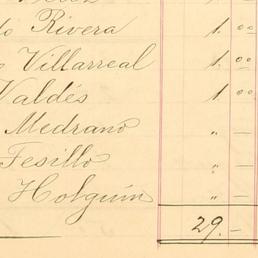 do Rivera 1. 00
o Villarreal 1. 00
Valdés 1. 00
Medrano " —
Fesillo " —
Holguín " —
29. —